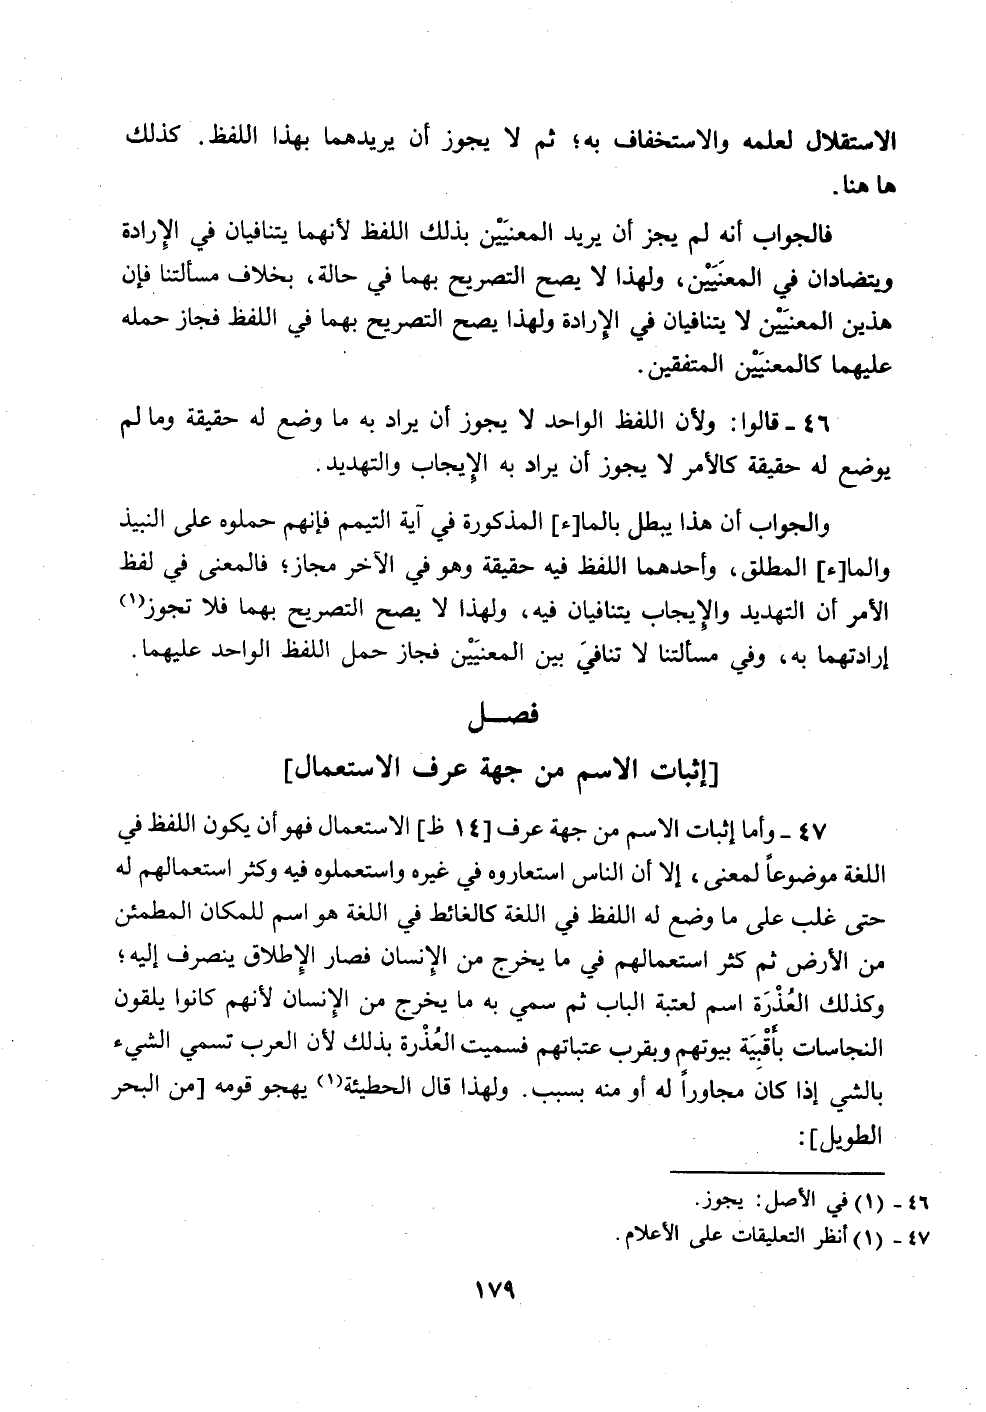 الاستقلال لعلمه والاستخفاف به؛ ثم لا يجوز أن يريدهما بهذا اللفظ. كذلك
ها هنا.
فالجواب أنه لم يجز أن يريد المعنيَيْن بذلك اللفظ لأنهما يتنافيان في الإرادة
ويتضادان في المعنَيَيْن، ولهذا لا يصح التصريح بهما في حالة، بخلاف مسألتنا فإن
هذين المعنيَيْن لا يتنافيان في الإرادة ولهذا يصح التصريح بهما في اللفظ فجاز حمله
عليهما كالمعنيَيْن المتفقين.
٤٦ - قالوا: ولأن اللفظ الواحد لا يجوز أن يراد به ما وضع له حقيقة وما لم
يوضع له حقيقة كالأمر لا يجوز أن يراد به الإيجاب والتهديد.
والجواب أن هذا يبطل بالما[ء] المذكورة في آية التيمم فإنهم حملوه على النبيذ
والما[ء] المطلق، وأحدهما اللفظ فيه حقيقة وهو في الآخر مجاز؛ فالمعنى في لفظ
الأمر أن التهديد والإيجاب يتنافيان فيه، ولهذا لا يصح التصريح بهما فلا تجوز(١)
إرادتهما به، وفي مسألتنا لا تنافيَ بين المعنيَيْن فجاز حمل اللفظ الواحد عليهما.
فصـل
[إثبات الاسم من جهة عرف الاستعمال]
٤٧ - وأما إثبات الاسم من جهة عرف [١٤ ظ] الاستعمال فهو أن يكون اللفظ في
اللغة موضوعاً لمعنى، إلا أن الناس استعاروه في غيره واستعملوه فيه وكثر استعمالهم له
حتى غلب على ما وضع له اللفظ في اللغة كالغائط في اللغة هو اسم للمكان المطمئن
من الأرض ثم كثر استعمالهم في ما يخرج من الإنسان فصار الإطلاق ينصرف إليه؛
وكذلك العُذْرَة اسم لعتبة الباب ثم سمي به ما يخرج من الإنسان لأنهم كانوا يلقون
النجاسات بأَقْبِيَة بيوتهم وبقرب عتباتهم فسميت العُذْرة بذلك لأن العرب تسمي الشيء
بالشي إذا كان مجاوراً له أو منه بسبب. ولهذا قال الحطيئة(١) يهجو قومه [من البحر
الطويل]:
٤٦ - (١) في الأصل: يجوز.
٤٧ - (١) أنظر التعليقات على الأعلام.
١٧٩